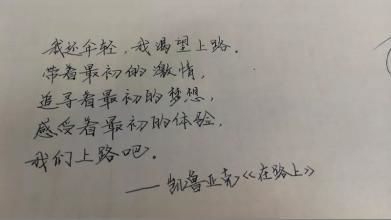 我还年轻，我渴望上路.
带着最初的激情，
追寻着最初的梦想，
感受着最初的体验，
我们上路吧.
——凯鲁亚克《在路上》